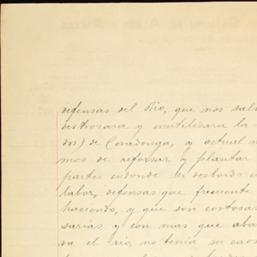 defensas del Rio, que nos sal
destrozara y inutilizara la
de Covadonga, y actual
mos de reformar y plantar
partes endonde se desbordo
labor, defensas que frecuente
haciendo, y que son costosas
sarias, y con mas que aba
va el rio no tenia su cauc